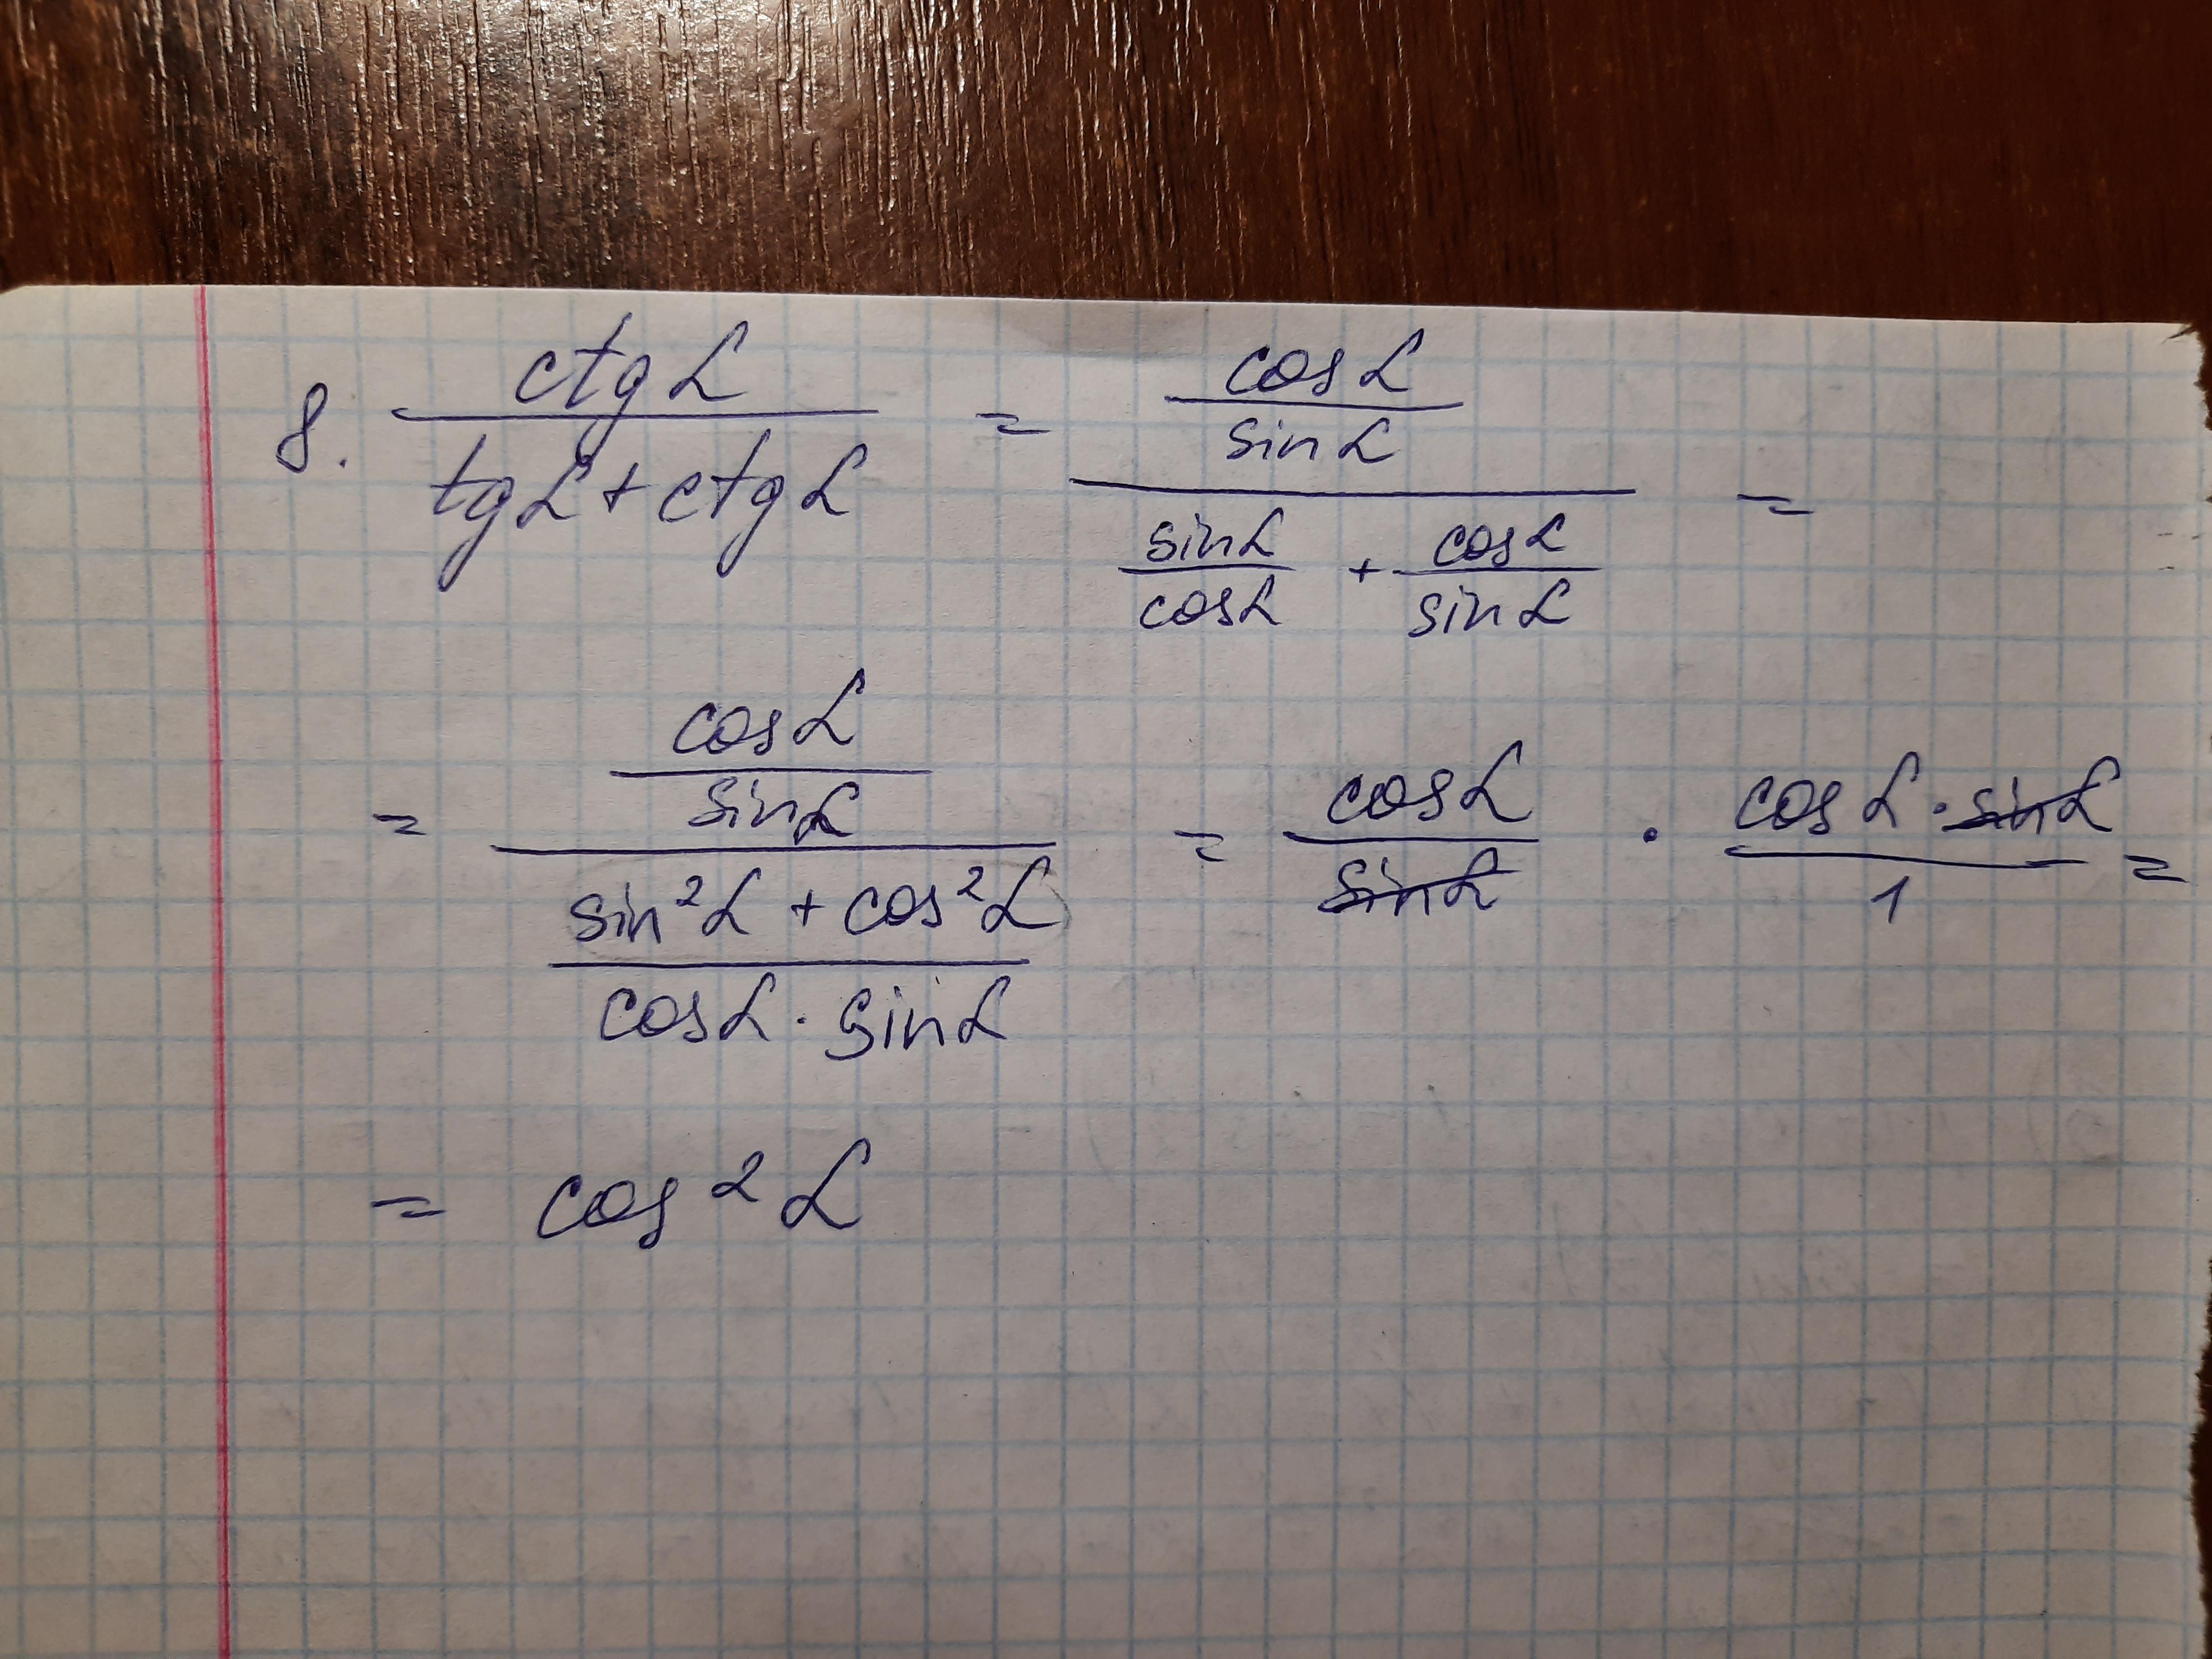 8. ctg α / (tg α + ctg α) = (cos α / sin α) / (sin α / cos α + cos α / sin α) =
= (cos α / sin α) / ((sin² α + cos² α) / (cos α · sin α)) = cos α / sin α · (cos α · sin α) / 1 =
= cos² α